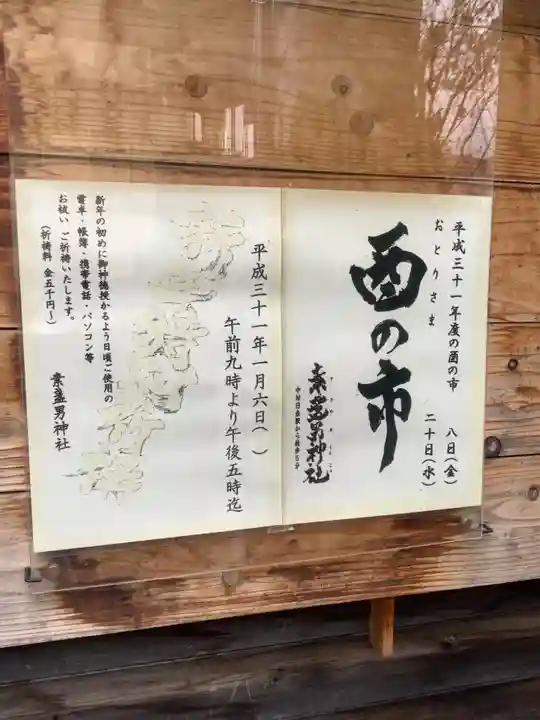 平成三十一年度の酉の市
おとりさま
八日(金)
二十日(水)
酉の市
素盞男神社
中村日赤駅から徒歩5分
平成三十一年一月六日( )
午前九時より午後五時迄
新年の初めに御神徳授かるよう日頃ご使用の
電卓・帳簿・携帯電話・パソコン等
お祓いご祈祷いたします。
(祈祷料 金五千円~)
素盞男神社